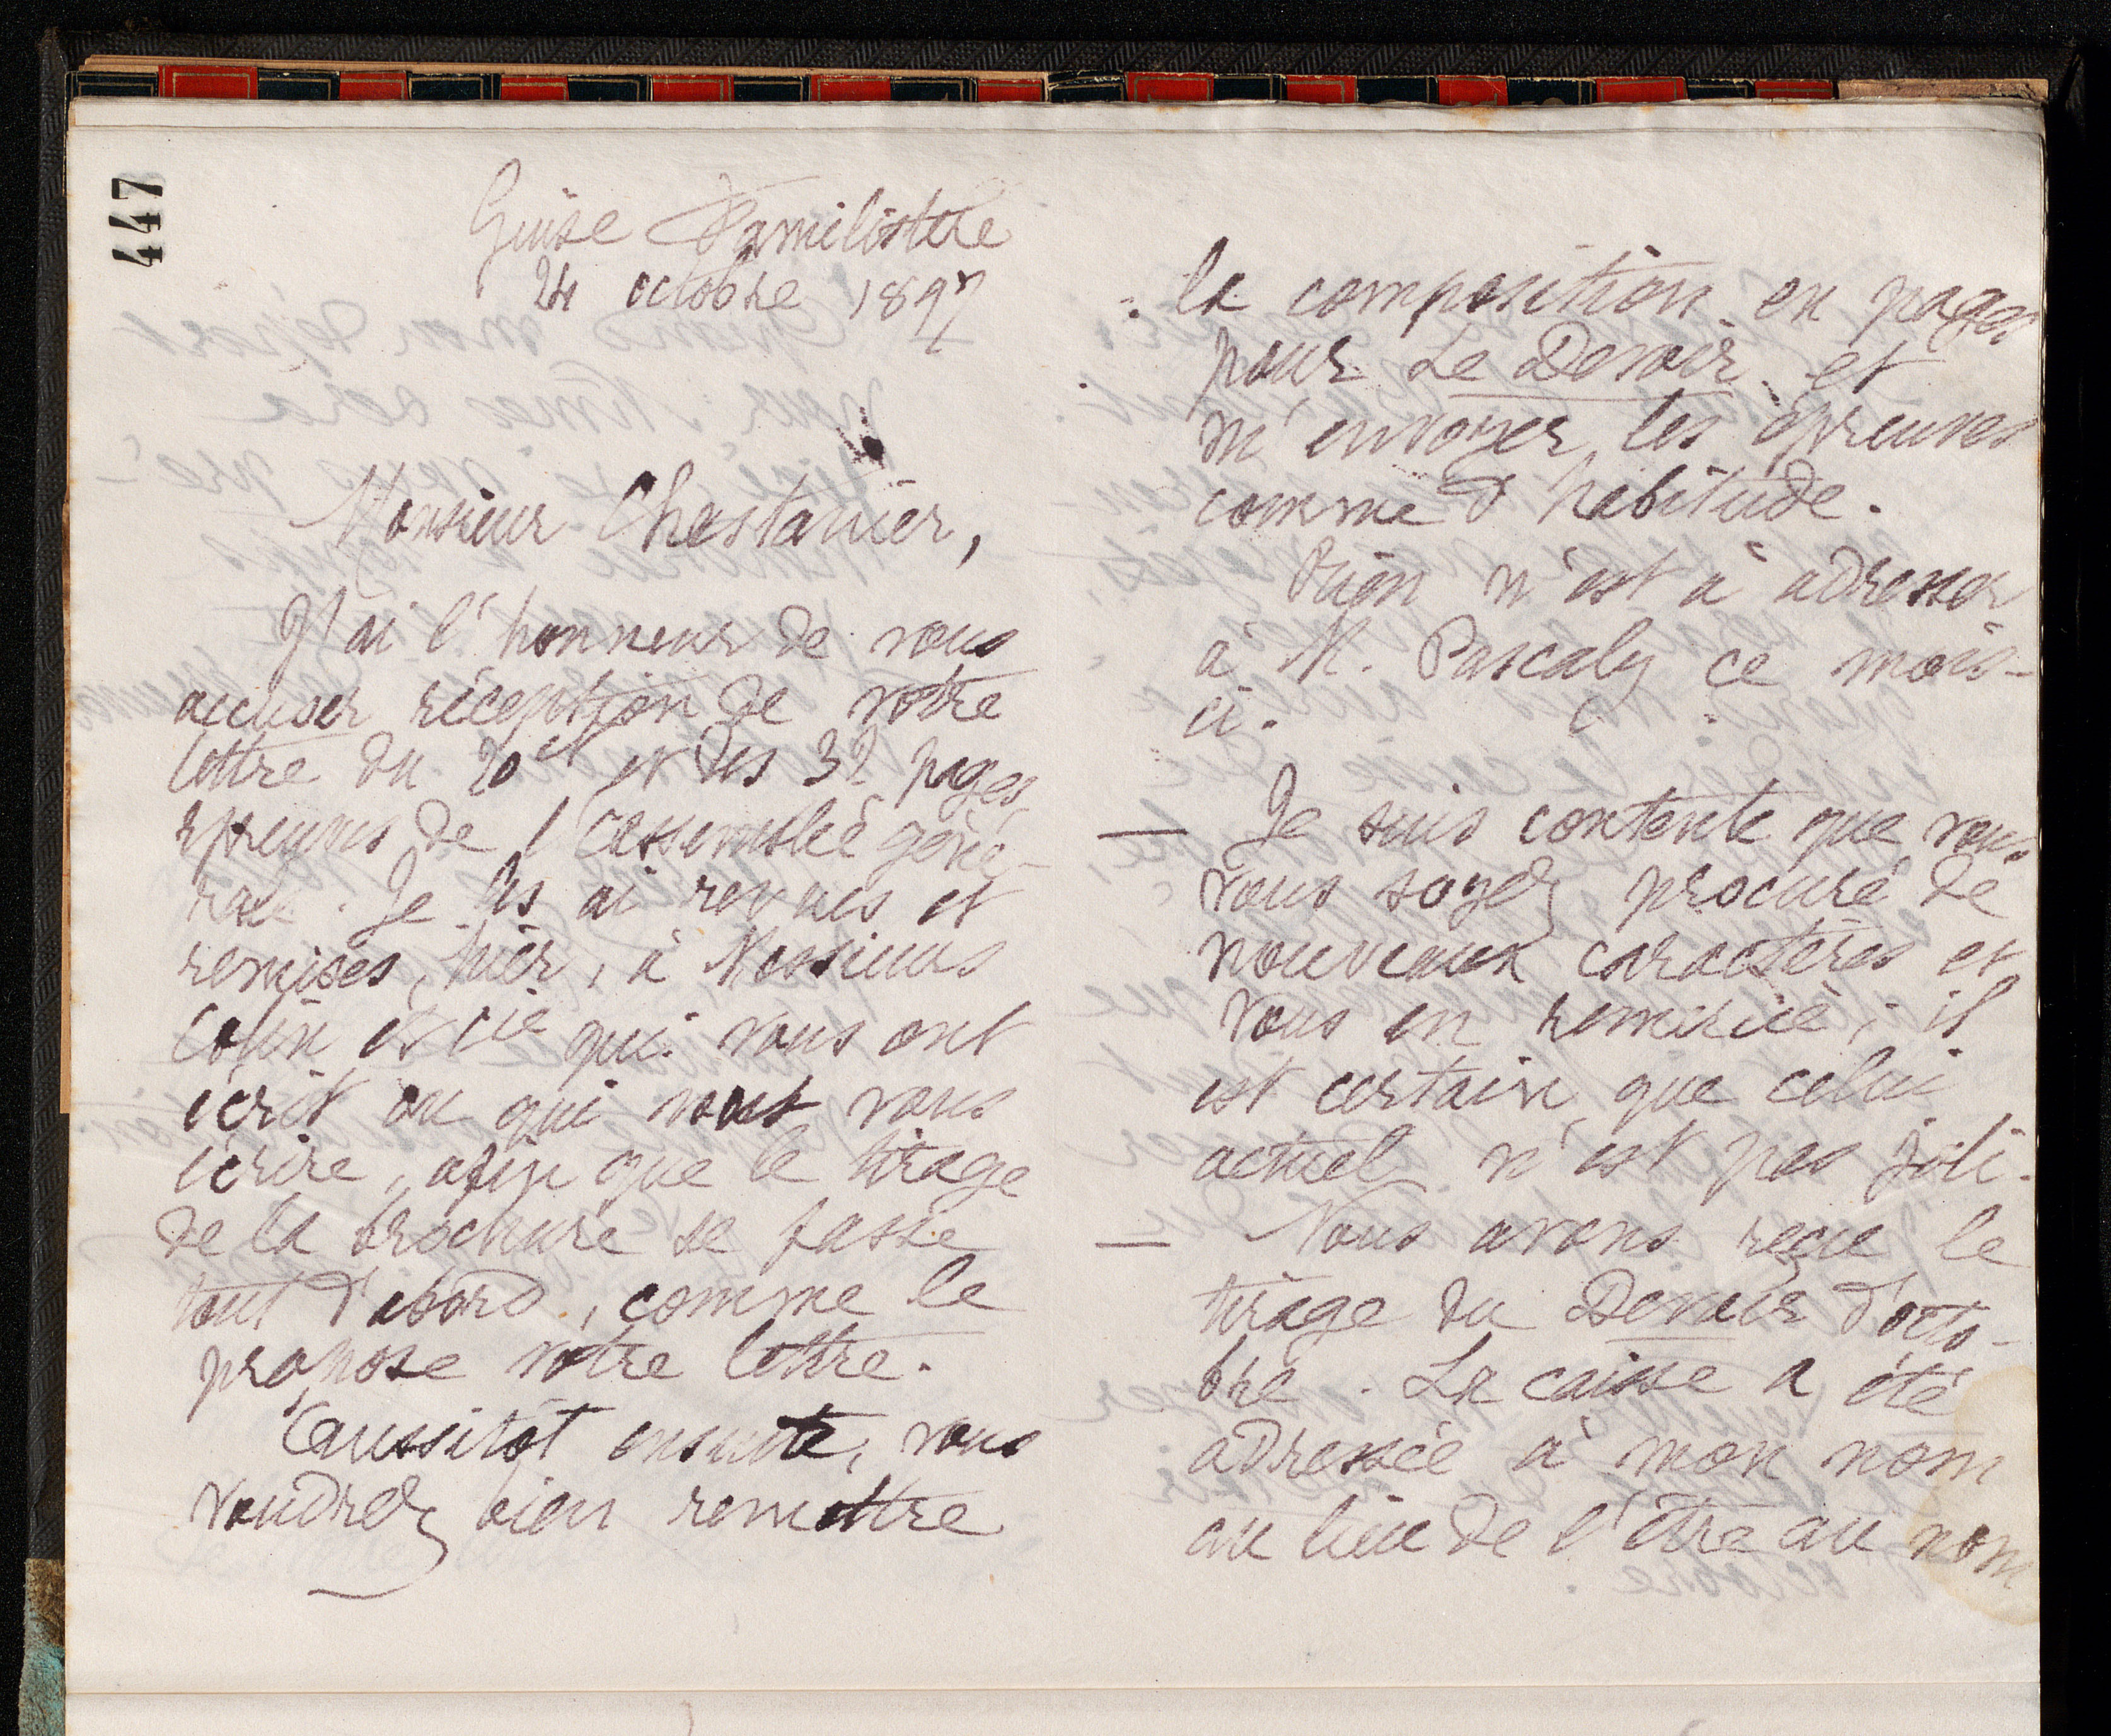 447
Guise Familistère
24 octobre 1897
Monsieur Chastanier,
J'ai l'honneur de vous
accuser réception de votre
lettre du 20 ct et des 32 pages,
épreuves de l'assemblée géné-
rale. Je les ai revues et
remises, hier, à Messieurs
Colin et Cie qui vous ont
écrit ou qui vont vous
écrire, afin que le tirage
de la brochure se fasse
tout d'abord, comme le
propose votre lettre.
Aussitôt ensuite, vous
voudrez bien remettre
la composition en pages
pour Le Devoir et
m'envoyer les épreuves
comme d'habitude.
Rien n'est à adresser
à M. Pascaly ce mois-
ci.
— Je suis contente que vous
vous soyez procuré de
nouveaux caractères et
vous en remercie ; il
est certain que celui
actuel n'est pas joli.
— Nous avons reçu le
tirage du Devoir d'octo-
bre. La caisse a été
adressée à mon nom
au lieu de l'être au nom